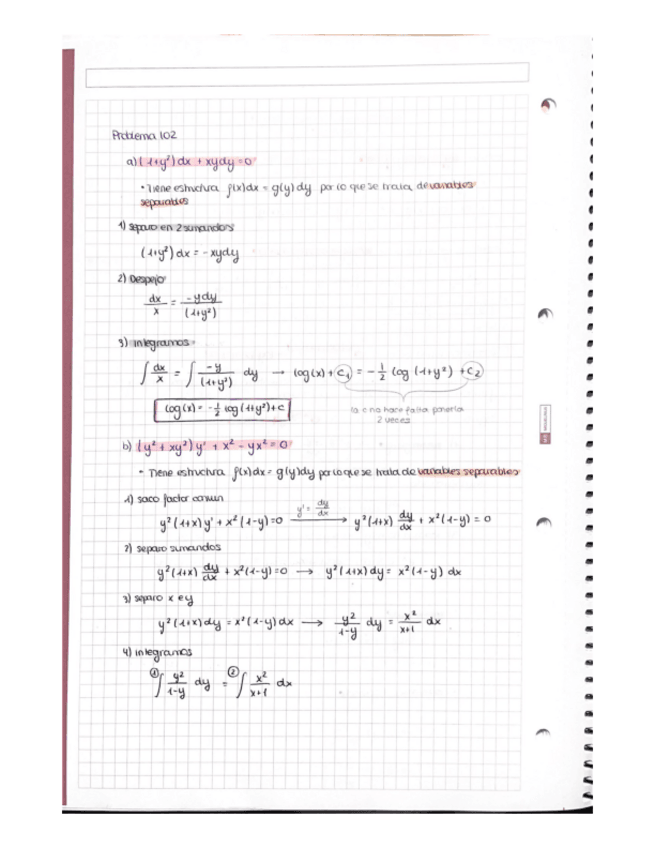 Problema 102
a) (1+y²) dx + xydy = 0
• Tiene estructura f(x)dx = g(y) dy por lo que se trata de variables
separables
1) separo en 2 sumandos
(1+y²) dx = - xydy
2) Despejo
dx/x = -ydy/(1+y²)
3) integramos
∫ dx/x = ∫ -y/(1+y²) dy → log(x) + C₁ = - 1/2 log (1+y²) + C₂
log(x) = - 1/2 log (1+y²) + C
la c no hace falta ponerla
2 veces
b) (y² + xy²) y' + x² - yx² = 0
• Tiene estructura f(x)dx = g(y)dy por lo que se trata de variables separables
1) saco factor comun
y² (1+x) y' + x² (1-y) = 0 y' = dy/dx → y² (1+x) dy/dx + x² (1-y) = 0
2) separo sumandos
y² (1+x) dy/dx + x² (1-y) = 0 → y² (1+x) dy = x² (1-y) dx
3) separo x e y
y² (1+x) dy = x² (1-y) dx → y²/1-y dy = x²/x+1 dx
4) integramos
① ∫ y²/1-y dy = ② ∫ x²/x+1 dx